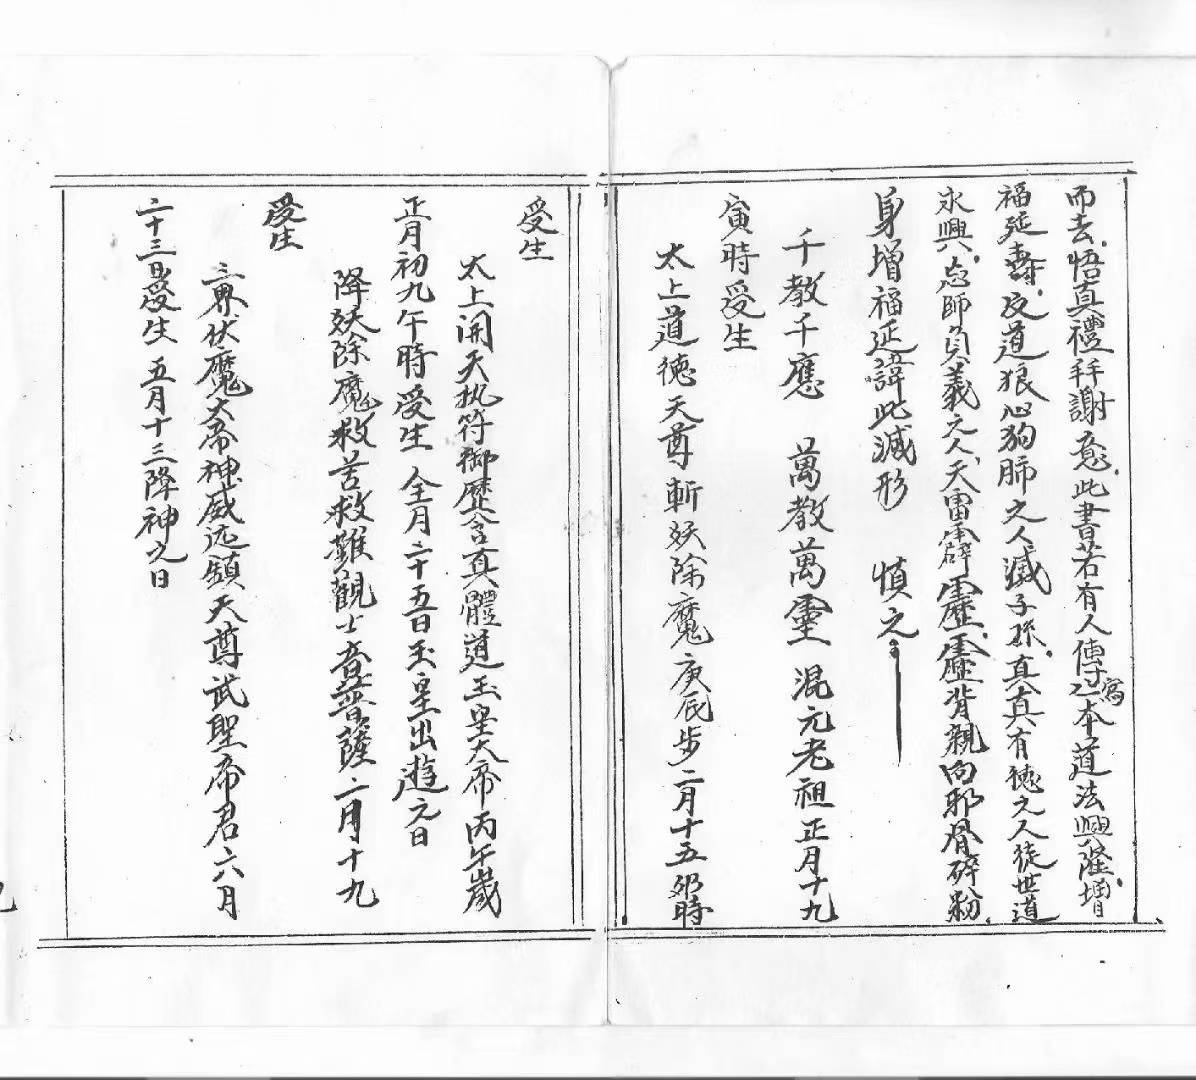 而去悟真禮拜謝愈此書若有人傳寫一本道法興隆增
福延壽反道狼心狗肺之人滅子孫真真有德之人徒世道
永興忘師負義之人天雷霹靂靂背親向邪骨碎粉
身增福延諱此滅形 慎之
千教千應 萬教萬靈 混元老祖正月十九
寅時受生
太上道德天尊斬妖除魔庚辰步二月十五卯時
受生
太上開天执符御歷含真體道玉皇大帝丙午歲
正月初九午時受生 仝月二十五日玉皇出遊之日
降妖除魔救苦救難觀士音菩薩二月十九
受生
三界伏魔大帝神威远鎮天尊武聖帝君六月
二十三日受生 五月十三降神之日